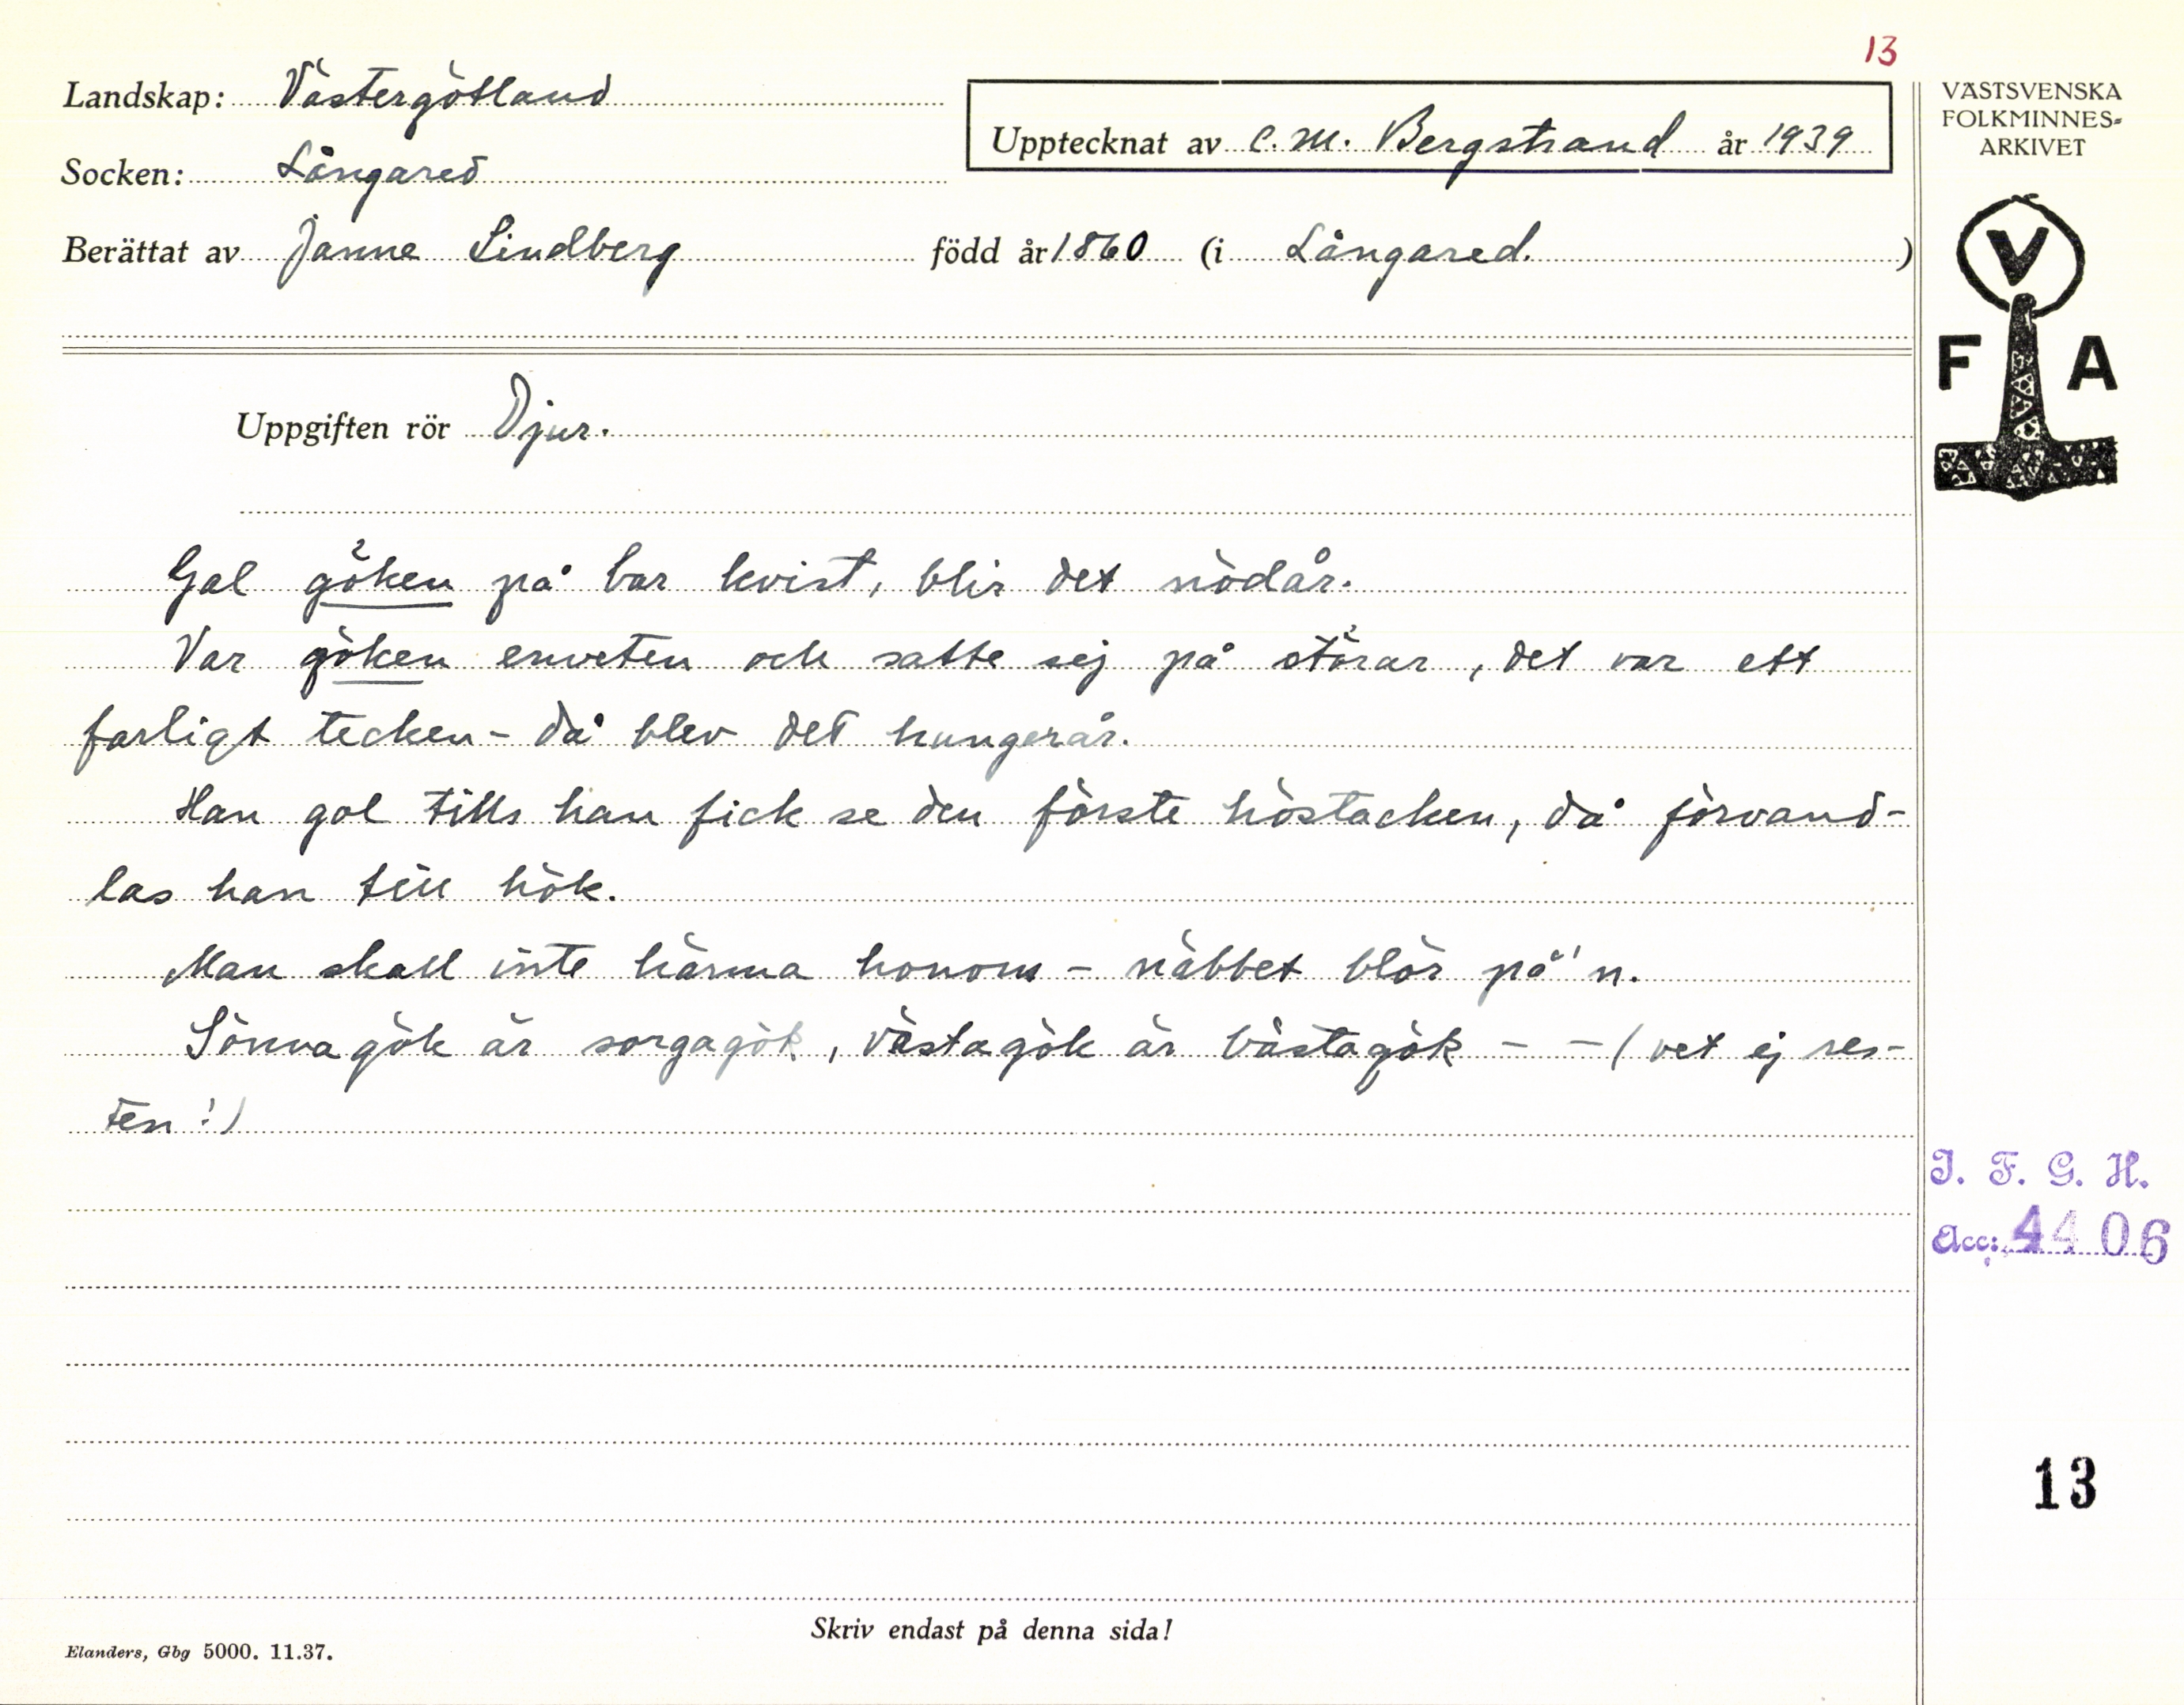 13
Landskap: Västergötland
Upptecknat av C. M. Bergstrand år 1939
VÄSTSVENSKA
FOLKMINNES-
ARKIVET
Socken: Långared
Berättat av Janne Lindberg född år 1860 (i Långared.)
V
F A
Uppgiften rör Djur.
Gal göken på bar kvist, blir det nödår.
Var göken enveten och satte sej på störar, det var ett
farligt tecken - då blev det hungerår.
Han gol tills han fick se den förste höstacken, då förvand-
las han till hök.
Man skall inte härma honom - näbbet blör på'n.
Sönnagök är sorgagök, västagök är bästagök - - (vet ej res-
ten!)
I. F. G. H.
Acc: 4406
13
Skriv endast på denna sida!
Elanders, Gbg 5000. 11.37.